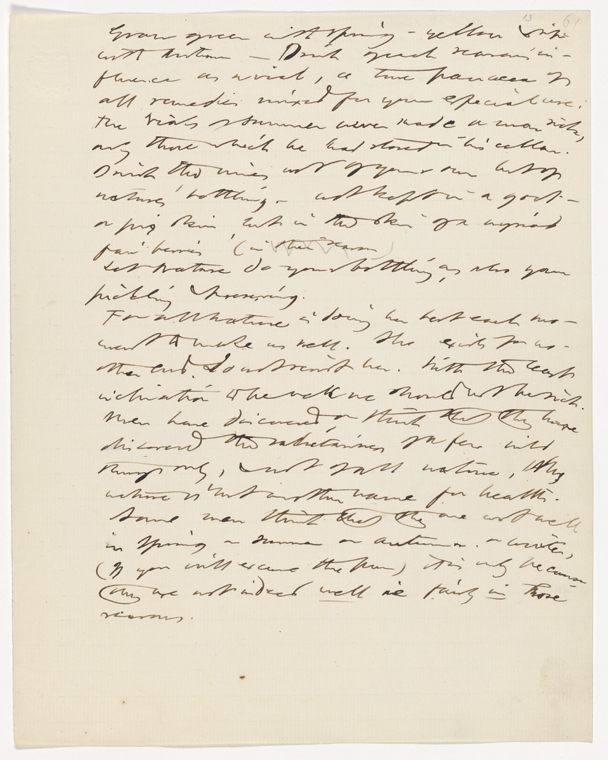 61
Grow green with spring - yellow & ripe
with Autumn — Drink each season's in-
fluence as a vial, a true panacea of
all remedies mixed for your especial use.
The vials of summer never made a man sick,
only those which he had stored in his cellar.
Drink the wines not of your own but of
nature's bottling - not kept in a goat-
or pig skin, but in the skin of a myriad
fair berries (in their season
Let Nature do your bottling, as also your
pickling & preserving.
For all Nature is doing her best each mo-
ment to make us well. She exists for no
other end. Do not resist her. With the least
inclination to be well we should not be sick.
Men have discovered or think that they have
discovered the salutariness of a few wild
things only, & not of all nature, Why
nature is but another name for health.
Some men think that they are not well
in Spring or summer or autumn or winter,
(if you will excuse the pun) it is only because
they are not indeed well ie fairly in those
seasons.